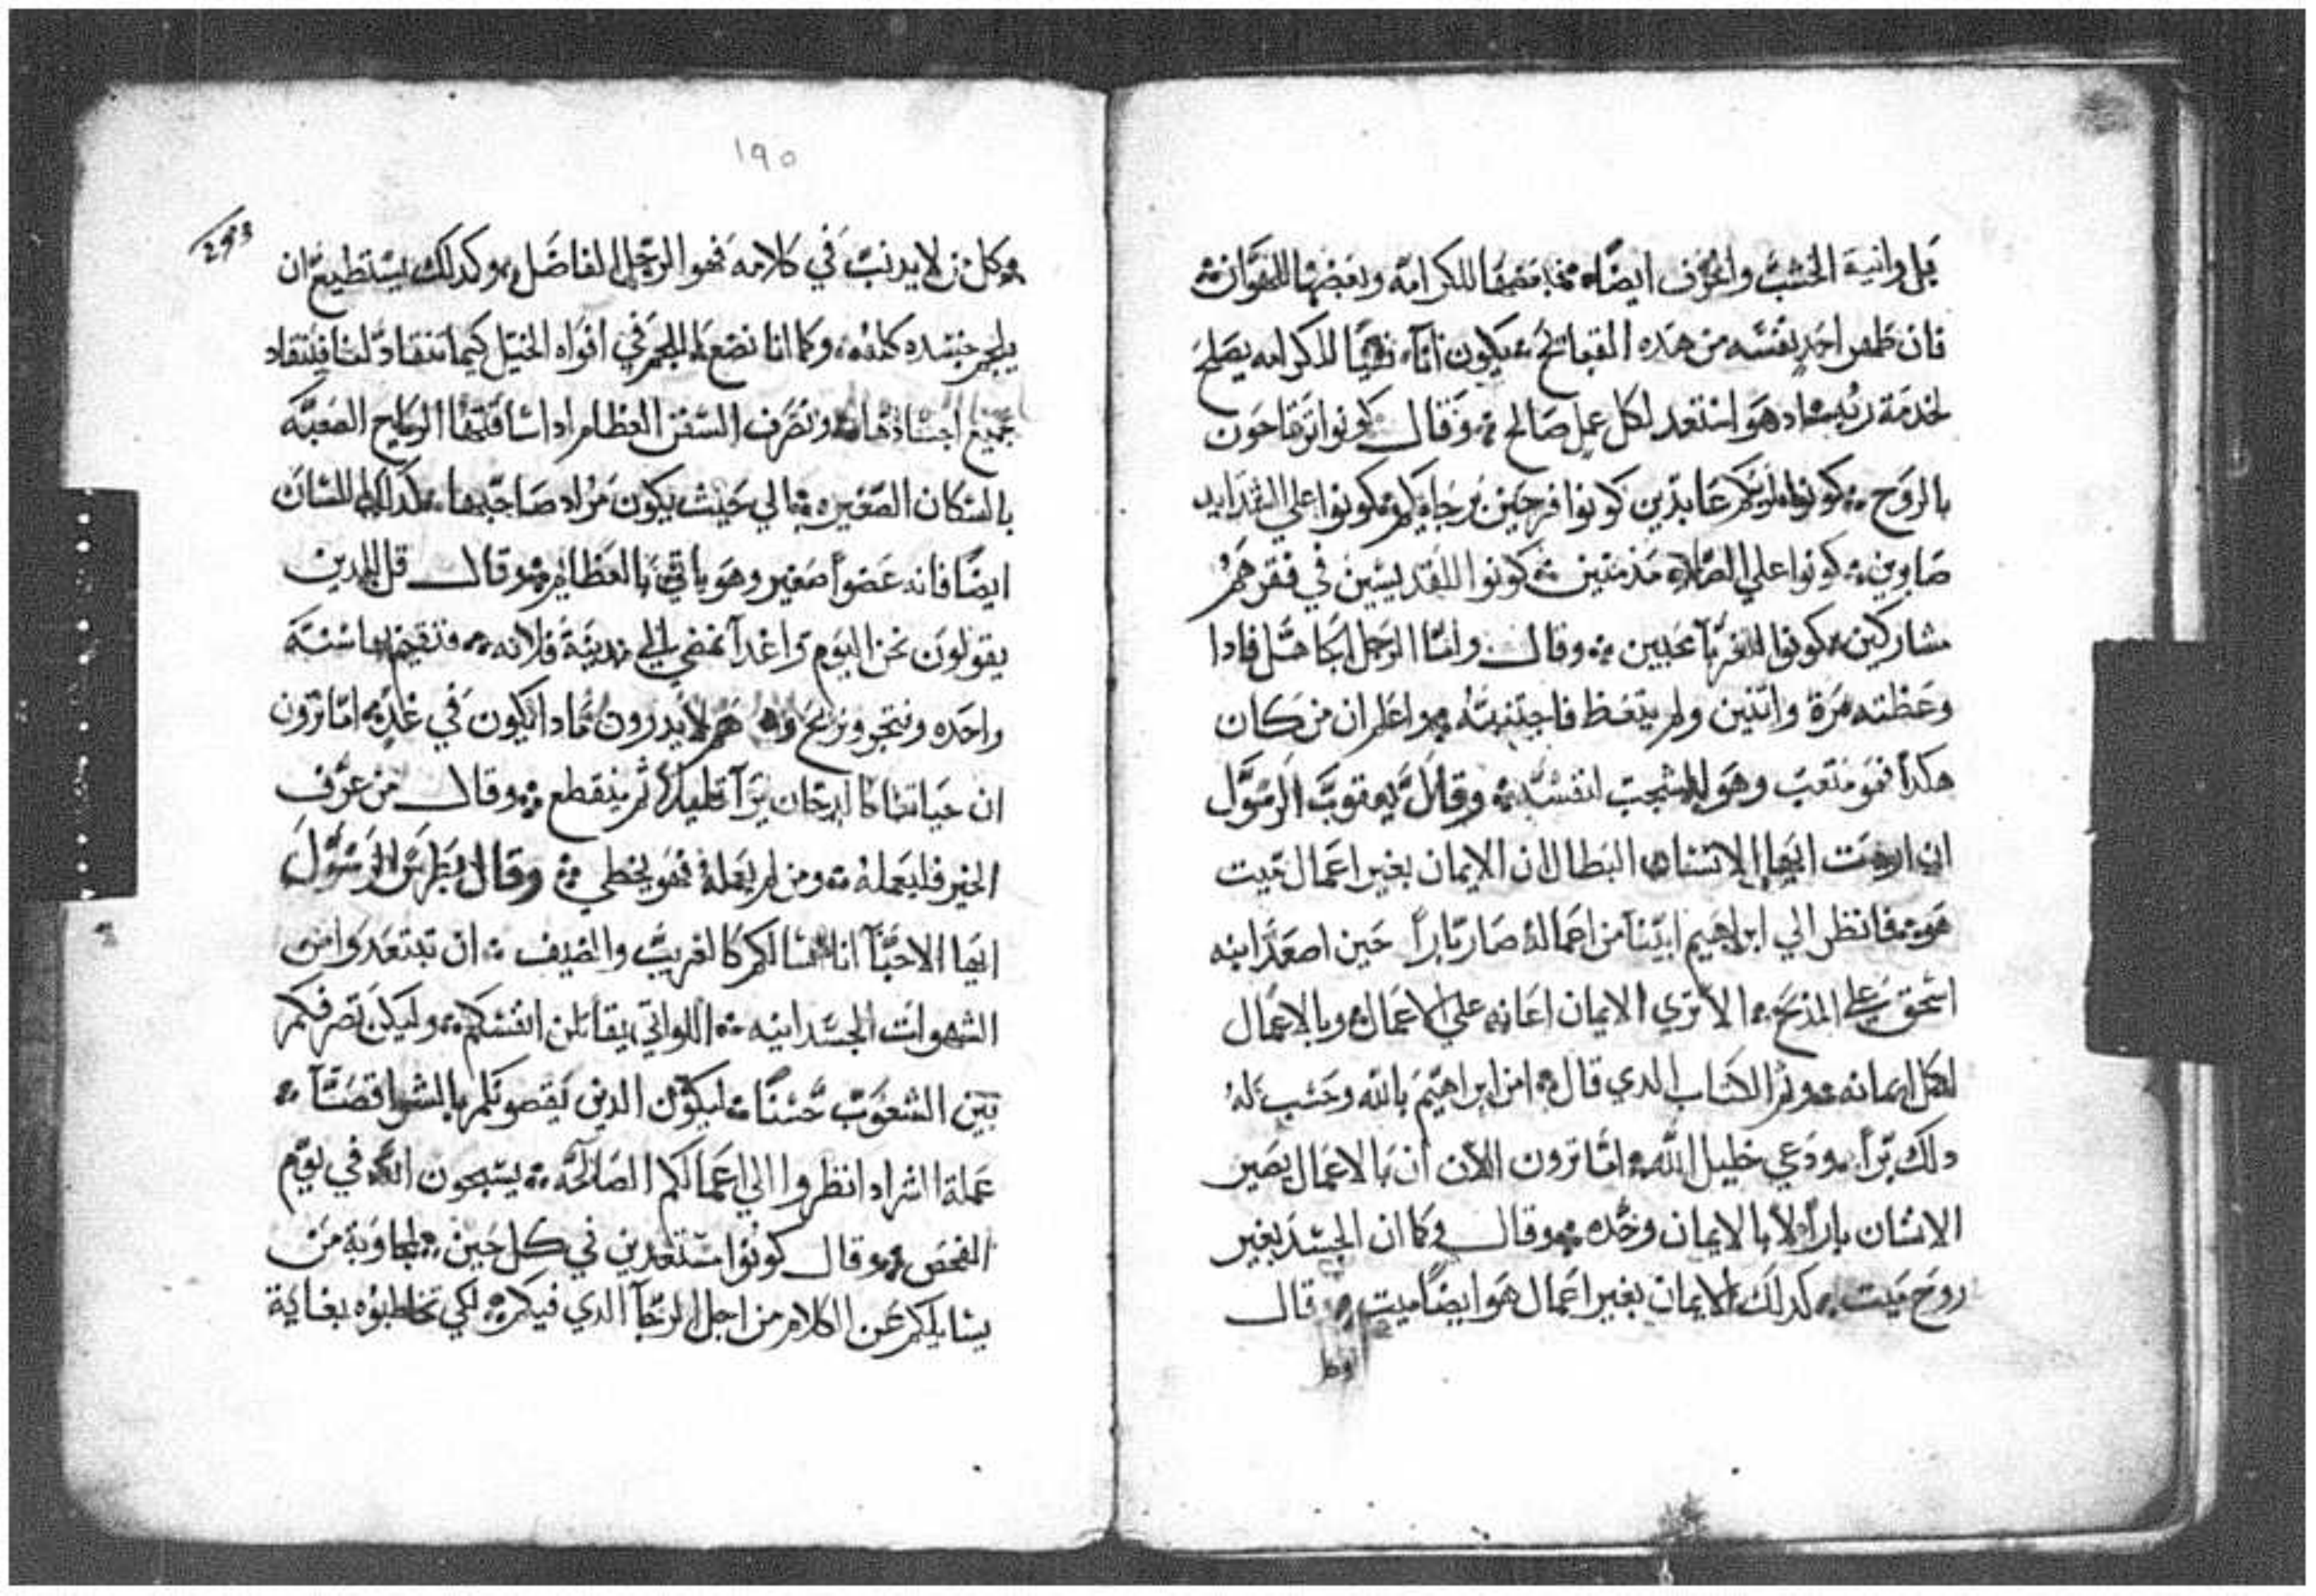 بل وانية الخشب والخزف ايضاً فبعضها للكرامه وبعضها للهوان
فان طهر احد نفسه من هده القبائح يكون اناء نقياً للكرامه يصلح
لخدمة ربه اد هو استعد لكل عمل صالح وقال كونوا ترتاحون
بالروح كونوا لربكم عابدين كونوا فرحين برجايكم كونوا علي الشدايد
صابرين كونوا علي الصلاه مدمنين كونوا للقديسين في فقرهم
مشاركين كونوا للغربآ محبين وقال واما الرجل الجاهل فادا
وعظته مرة واتنين ولم يتعظ فاجتنبه واعلم ان من كان
هكداً فهو متعب وهو المشجب لنفسه وقال يعقوب الرسول
ان اردت ايها الانسان البطال ان الايمان بغير اعمال ميت
هو فانظر الي ابراهيم ابينا من اعماله صار باراً حين اصعد ابنه
اسحق علي المذبح الا تري الايمان اعانه علي الاعمال وبالاعمال
اكمل ايمانه وتم الكتاب الدي قال امن ابراهيم بالله وحسب له
دلك براً ودعي خليل الله اما ترون الان ان بالاعمال يصير
الانسان باراً لا بالايمان وحده وقال كما ان الجسد بغير
روح ميت كدلك الايمان بغير اعمال هو ايضاً ميت قال
١٩٥
وكل من لا يدنب في كلامه فهو الرجل الفاضل وكدلك يستطيع ان
يلجم جسده كله وكما انا نضع اللجم في افواه الخيل كيما تنقاد لنا فينقاد
جميع اجسادها وتصرف السفن العظام اد اساقتها الرياح الصعبة
بالسكان الصغيره الي حيث يكون مراد صاحبها كدلك اللسان
ايضاً فانه عضواً صغير وهو ياتي بالعظايم وقال قل للدين
يقولون نحن اليوم او غداً نمضي الي مدينة فلانه فنقيم بها سنة
واحده ونتجر ونربح وهم لا يدرون مادا يكون في غد اما ترون
ان حياتنا كالدخان يرآ قليلاً ثم ينقطع وقال من عرف
الخير فليعمله ومن لم يعمله فهو يخطي وقال بطرس الرسول
ايها الاحبآ انا اسالكم كالغريب والضيف ان تبتعدوا من
الشهوات الجسدانيه اللواتي يقاتلن انفسكم وليكن تصرفكم
بين الشعوب حسناً ليكون الدين يقصونكم بالسوا قصتاً
عملة الشر اد انظروا الي اعمالكم الصالحة يسبحون الله في يوم
الفحص وقال كونوا مستعدين في كل حين لمجاوبة من
يسايلكم عن الكلام من اجل الرجآ الدي فيكم لكي تخاطبوه بغاية